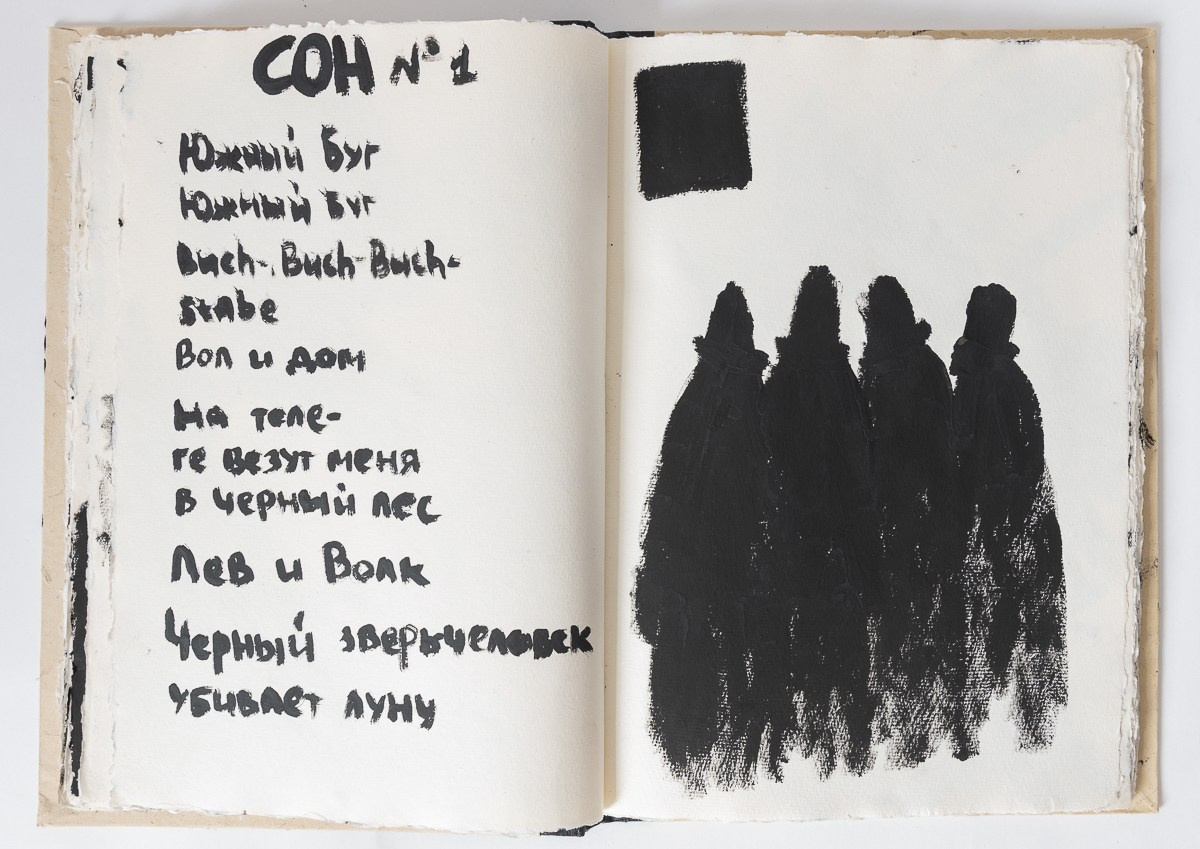 СОН №1
Южный Буг
Южный Буг
Buch-Buch-Buch-
stabe
Вол и дом
На теле-
ге везут меня
в черный лес
Лев и Волк
Черный зверьчеловек
убивает луну